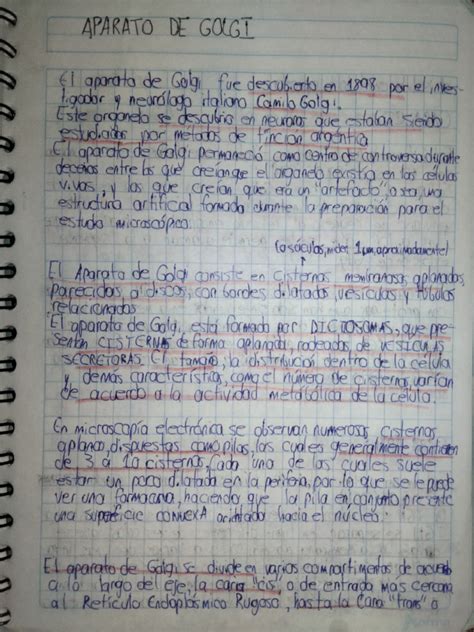 APARATO DE GOLGI
El aparato de Golgi fue descubierto en 1898 por el inves-
tigador y neurólogo italiano Camilo Golgi.
Este organelo se descubrió en neuronas que estaban siendo
estudiadas por métodos de tinción argentia
El aparato de Golgi permaneció como centro de controversia durante
decenios entre los que creian que el organelo existia en las celulas
vivas, y los que creian que era un "artefacto", o sea, una
estructura artificial formada durante la preparación para el
estudio microscópico.
(o sáculos, miden 1 µm, aproximadamente)
El Aparato de Golgi consiste en cisternas membranosas, aplanadas,
parecidas a discos, con bordes dilatados, vesículas y túbulos
relacionados
El aparato de Golgi, está formado por DICTIOSOMAS, que pre-
sentan CISTERNAS de forma aplanada, rodeadas de VESICULAS
SECRETORAS. El tamaño, la distribución dentro de la célula
y demás características, como el número de cisternas, varian
de acuerdo a la actividad metabólica de la célula.
En microscopía electrónica se observan numerosas cisternas
aplanadas, dispuestas como pilas, las cuales generalmente contienen
de 3 a 10 cisternas, cada una de las cuales suele
estar un poco dilatada en la periferia, por lo que se le puede
ver una forma curva, haciendo que la pila en conjunto presente
una superficie CONVEXA orientada hacia el núcleo.
El aparato de Golgi se divide en varios compartimentos de acuerdo
a lo largo del eje, la cara "cis", o de entrada más cercana
al Retículo Endoplásmico Rugoso, hasta la cara "trans" o